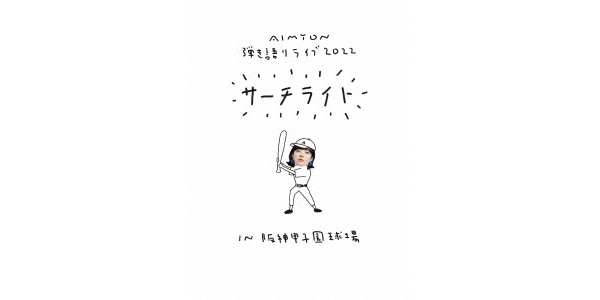 AIMYON
弾き語りライブ2022
サーチライト
IN 阪神甲子園球場